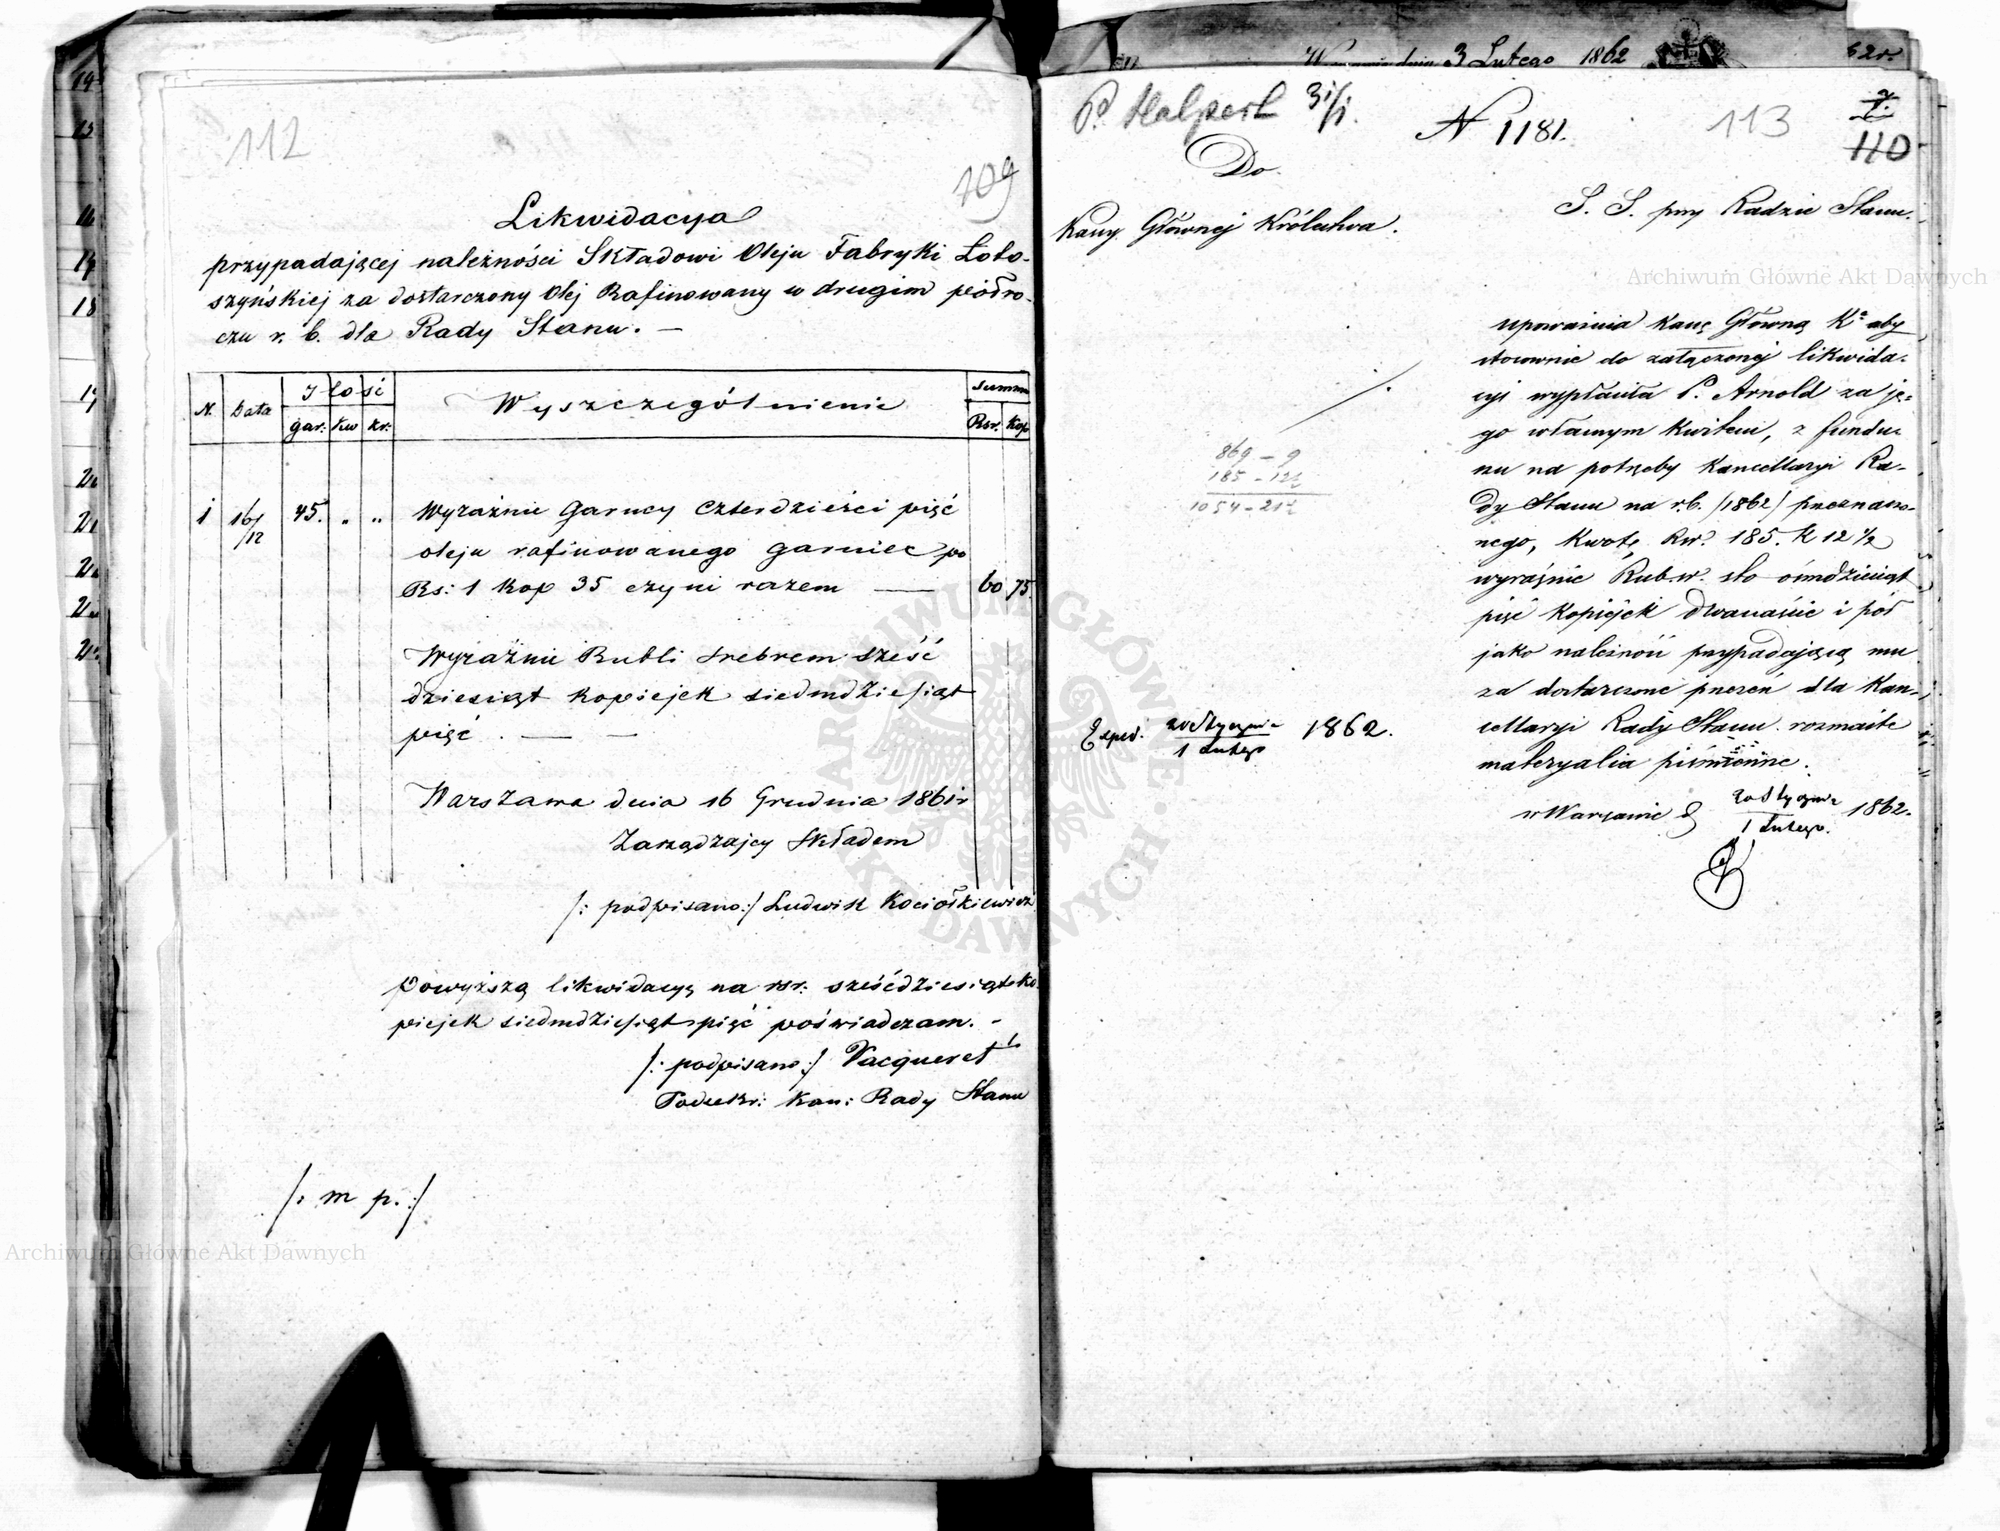 112
109
Likwidacya
przypadającej należności Składowi Oleju Fabryki Loto-
szyńskiej za dostarczony Olej Rafinowany w drugim półro-
czu r. b. dla Rady Stanu. —
N. Data Ilość Wyszczególnienie Summa
gar: kw kr: Rsr. kop
1 16/12 45. „ „ Wyraźnie Garncy Czterdzieści pięć
oleju rafinowanego garniec po
Rs: 1 kop 35 czyni razem — 60 75.
Wyraźnie Rubli srebrem sześć
dziesiąt kopiejek siedmdziesiąt
pięć . — —
Warszawa dnia 16 Grudnia 1861 r
Zarządzajcy Składem
/: podpisano :/ Ludwik Kociołkiewicz
Powyższą likwidacyą na rsr: sześćdziesiąt ko-
piejek siedmdziesiąt pięć poświadczam. -
/: podpisano :/ Vacqueret
Podsekr: Kan: Rady Stanu
/: m p. :/
3 Lutego 1862
62r.
P. Halpert 31/1.
N 1181.
113
110
Do
Kassy Głównej Królestwa.
S. S. przy Radzie Stanu.
upoważnia Kassę Główną Ka aby
stosownie do załączonej likwida-
cyi wypłaciła P. Arnold za je-
go własnym kwitem, z fundu-
szu na potrzeby Kancellaryi Ra-
dy Stanu na r.b. /1862/ przeznaczo-
nego, kwotę Rsr. 185. K 12 ½
wyraźnie Rub.sr. sto ośmdziesiąt
pięć kopiejek dwanaście i pół
jako należność przypadającą mu
za dostarczone przezeń dla Kan-
cellaryi Rady Stanu rozmaite
materyalia piśmienne.
w Warszawie d 20 Stycznia / 1 Lutego. 1862.
869 – 9
185 – 12½
1054 – 21½
Exped. 20 Stycznia / 1 Lutego 1862.
Archiwum Główne Akt Dawnych
Archiwum Główne Akt Dawnych
ARCHIWUM GŁÓWNE AKT DAWNYCH